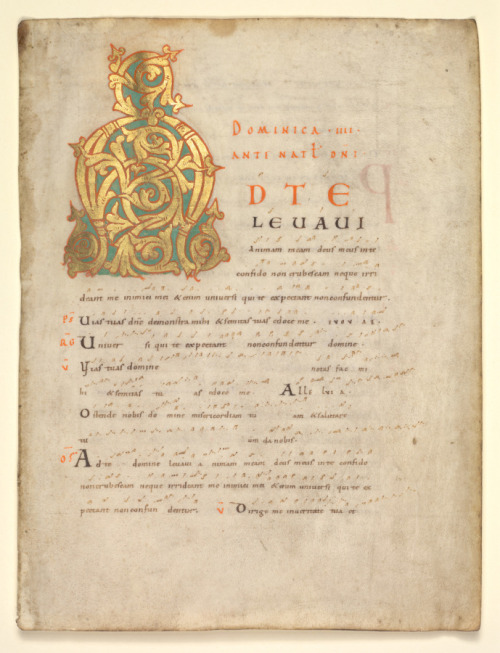 DOMINICA · IIII ·
ANTE NATL̄ DNI:
A D T E
LEUAUI
animam meam deus meus in te
confido non erubescam neque irri
deant me inimici mei & enim uniuersi qui te expectant non confundentur.
PS̄ Uias tuas dn̄e demonstra mihi & semitas tuas edoce me.
RG̅ Uniuersi qui te expectant non confundentur domine
V̄ Uias tuas domine notas fac mi
hi & semitas tuas edoce me Alleluia
Ostende nobis domine misericordiam tuam & salutare
tuum da nobis.
OF̄ Ad te domine leuaui animam meam deus meus in te confido
non erubescam neque irrideant me inimici mei & enim uniuersi qui te ex
pectant non confundentur. V̄ Dirige me in ueritate tua et